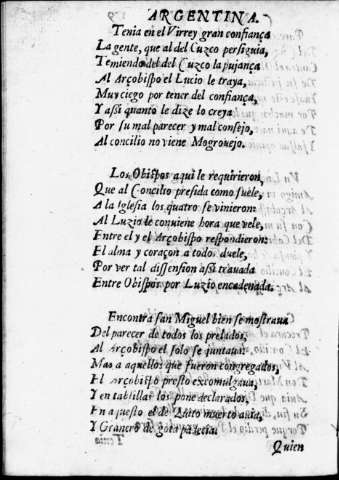 ARGENTINA.
Tenia en el Virrey gran confiança
La gente, que al del Cuzco perseguia,
Temiendo del del Cuzco la pujança
Al Arçobispo el Lucio le traya,
Muy ciego por tener del confiança,
Y assi quanto le dize lo creya
Por su mal parecer y mal consejo,
Al concilio no viene Mogrouejo.
Los Obispos aqui le requirieron
Que al Concilio presida como suele,
A la Iglesia los quatro se vinieron:
Al Luzio le conuiene hora que vele,
Entre el y el Arçobispo respondieron:
El alma y coraçon a todos duele,
Por ver tal dissension assi trauada
Entre Obispos por Luzio encadenada.
En contra san Miguel bien se mostraua
Del parecer de todos los prelados,
Al Arçobispo el solo se juntaua
Mas a aquellos que fueron congregados,
El Arçobispo presto excomulgaua,
Y en tablillas los pone declarados,
En aquesto el de Quito muerto auia,
Y Granero de gota padecia.
Quien